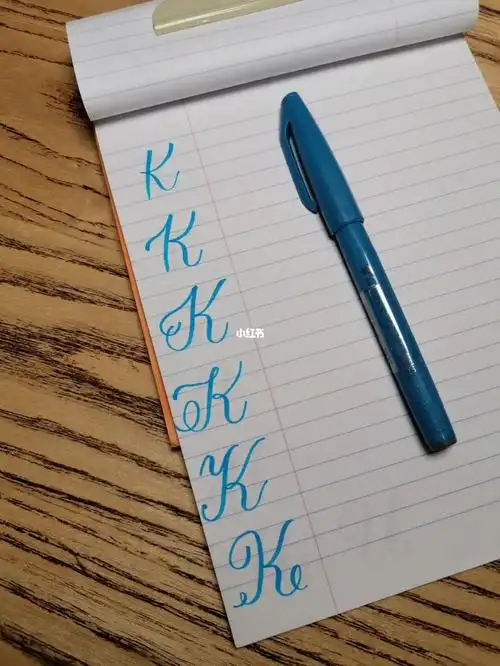 K
K
K
小红书
K
K
K